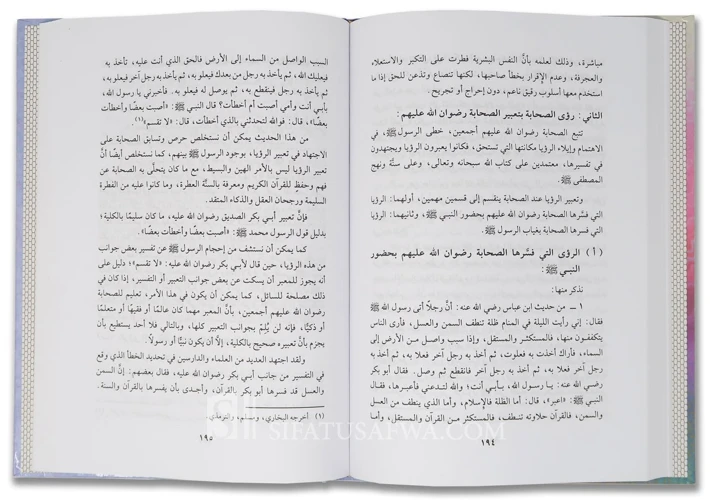 مباشرة، وذلك لعلمه بأنَّ النفس البشرية فطرت على التكبر والاستعلاء
والعجرفة، وعدم الإقرار بخطأ صاحبها، لكنها تنصاع وتذعن للحق إذا ما
استخدم معها أسلوب رقيق ناعم، دون إحراج أو تجريح.
الثاني: رؤى الصحابة بتعبير الصحابة رضوان الله عليهم:
تتبع الصحابة رضوان الله عليهم أجمعين، خطى الرسول ﷺ، في
الاهتمام وإيلاء الرؤيا مكانتها التي تستحق، فكانوا يعبرون الرؤيا ويجتهدون
في تفسيرها، معتمدين على كتاب الله سبحانه وتعالى، وعلى سنَّة ونهج
المصطفى ﷺ.
وتعبير الرؤيا عند الصحابة ينقسم إلى قسمين مهمين، أولهما: الرؤيا
التي فسَّرها الصحابة رضوان الله عليهم بحضور النبي ﷺ، وثانيهما: الرؤيا
التي فسَّرها الصحابة بغياب الرسول ﷺ.
( أ ) الرؤى التي فسَّرها الصحابة رضوان الله عليهم بحضور
النبي ﷺ:
نذكر منها:
١ ـ من حديث ابن عباس رضي الله عنه: أنَّ رجلاً أتى رسول الله ﷺ
فقال: إني رأيت الليلة في المنام ظلة تنطف السمن والعسل، فأرى الناس
يتكففون منها، فالمستكثر والمستقل، وإذا سبب واصل من الأرض إلى
السماء، فأراك أخذت به فعلوت، ثم أخذ به رجل آخر فعلا به، ثم أخذ به
رجل آخر فعلا به، ثم أخذ به رجل آخر فانقطع ثم وصل. فقال أبو بكر
رضي الله عنه: يا رسول الله، بأبي أنت! والله لتدعني فأعبرها، فقال
النبي ﷺ: «اعبر»، قال: أما الظلة فالإسلام، وأما الذي ينطف من العسل
والسمن، فالقرآن حلاوته تنطف، فالمستكثر من القرآن والمستقل، وأما
١٩٤
السبب الواصل من السماء إلى الأرض فالحق الذي أنت عليه، تأخذ به
فيعليك الله، ثم يأخذ به رجل من بعدك فيعلو به، ثم يأخذ به رجل آخر فيعلو به،
ثم يأخذ به رجل فينقطع به، ثم يوصل له فيعلو به. فأخبرني يا رسول الله،
بأبي أنت وأمي أصبت أم أخطأت؟ قال النبي ﷺ: «أصبت بعضًا وأخطأت
بعضًا»، قال: فوالله لتحدثني بالذي أخطأت، قال: «لا تقسم»(١).
من هذا الحديث يمكن أن نستخلص حرص وتسابق الصحابة على
الاجتهاد في تعبير الرؤيا، بوجود الرسول ﷺ بينهم، كما نستخلص أيضًا أنَّ
تعبير الرؤيا ليس بالأمر الهين والبسيط، مع ما كان يتحلَّى به الصحابة عن
فهم وحفظٍ للقرآن الكريم ومعرفة بالسنَّة العطرة، وما كانوا عليه من الفطرة
السليمة ورجحان العقل والذكاء المتقد.
فإنَّ تعبير أبي بكر الصديق رضوان الله عليه، ما كان سليمًا بالكلية؛
بدليل قول الرسول محمد ﷺ: «أصبت بعضًا وأخطأت بعضًا».
كما يمكن أن نستشف من إحجام الرسول ﷺ عن تفسير بعض جوانب
من هذه الرؤيا، حين قال لأبي بكر رضوان الله عليه: «لا تقسم»؛ دليل على
أنه يجوز للمعبر أن يسكت عن بعض جوانب التعبير أو التفسير، إذا كان في
ذلك مصلحة للسائل، كما يمكن أن يكون في هذا الأمر، تعليم للصحابة
رضوان الله عليهم أجمعين، بأنَّ المعبر مهما كان عالمًا أو فقيهًا أو متعلمًا
أو ذكيًّا، فإنه لن يُلِمّ بجوانب التعبير كلها، وبالتالي فلا أحد يستطيع بأن
يجزم بأنَّ تعبيره صحيح بالكلية، إلَّا أن يكون نبيًّا أو رسولاً.
ولقد اجتهد العديد من العلماء والدارسين في تحديد الخطأ الذي وقع
في التفسير من جانب أبي بكر رضوان الله عليه، فقال بعضهم: إنَّ السمن
والعسل قد فسرها أبو بكر بالقرآن، وأجدى بأن يفسرها بالقرآن والسنة.
(١) أخرجه البخاري، ومسلم، والترمذي.
١٩٥
SIFATUSAFWA.COM